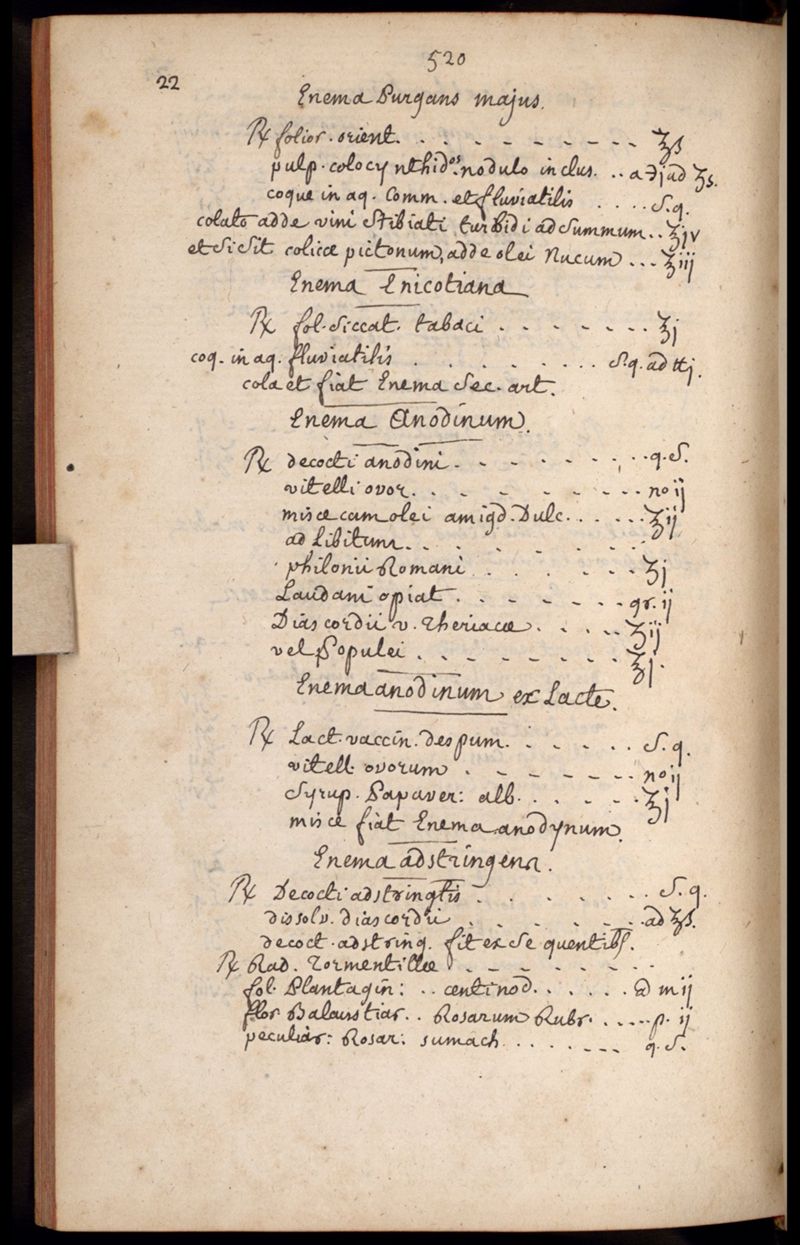 520
22
Enema Purgans majus.
℞ folior. orient. . . . . . . . . . ʒß
pulp. colocynthidos. nodulo inclus. . . a ℈j ad ʒs.
coque in aq. Comm. et fluviatilis . . . . S.q.
colato adde vini Stibiati turbidi ad Summum . . ℥jv
et Si Sit colicæ pictonum, adde olei Nucum . . . ℥iij
Enema Enicotiana
℞ fol. Siccat. tabaci . . . . . . . ℥j
coq. in aq. fluviatilis . . . . . . . . . S.q. ad ℔j.
cola et fiat Enema Sec. art.
Enema Anodinum.
℞ decocti anodini . . . . . . . . . q.S.
vitelli ovor. . . . . . . . . . no ij
misce cum olei amigd. Dulc. . . . . . ℥ij
ad Libitum . . . . . . . .
philonii Romani . . . . . ʒj
Laudani opiat . . . . . . . gr. ij
Diascordii v. Theriacæ . . . . . ʒij
vel Populei . . . . . . . . ℥j.
Enema anodinum ex Lacte.
℞ Lact. vaccin. despum. . . . . . S.q.
vitell. ovorum . . . . . . . no ij
Syrup. Papaver: alb. . . . . . ℥j
misce fiat Enema anodynum.
Enema adstringens.
℞ Decocti adstringtis . . . . . . . S.q.
dissolv. diascordii . . . . . . . ad ʒß.
decoct. adstring. fit ex Sequentib9.
℞ Rad. Tormentillæ . . . . . . . .
fol. Plantagin: . . centinod. . . . . . a m ij
flor Balaustiar. . Rosarum Rubr. . . . . . p. ij
Rosar: sumach . . . . . . . . q.S.